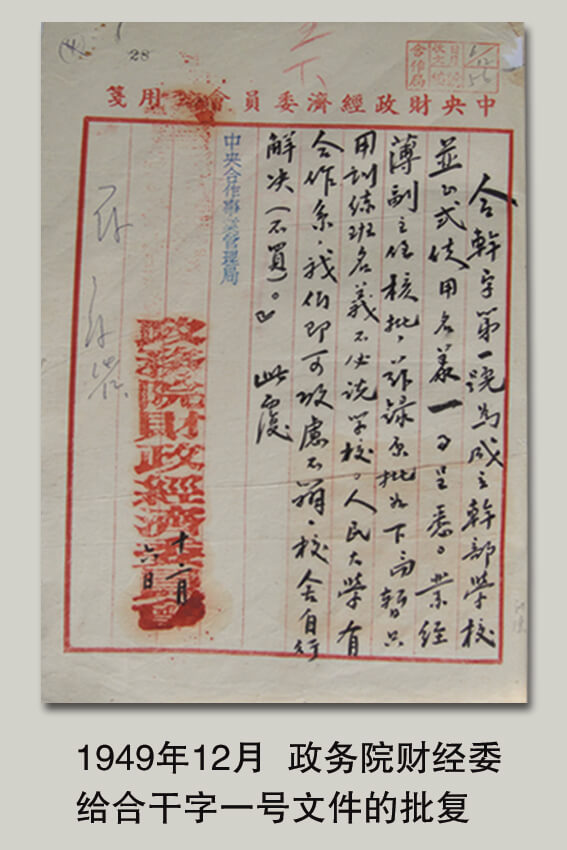 28
中央財政經濟委員會公用箋
合幹字第一號為成立幹部學校
並正式使用名義一司呈悉。業經
薄副主任核批,茲錄原批如下「暫只
用訓練班名義不必說學校。人民大學有
合作系,我們即可考慮不辦,校舍自行
解決(不買)。」此覆
中央合作事業管理局
政務院財政經濟委員會
十二月
六日
1949年12月 政务院财经委
给合干字一号文件的批复